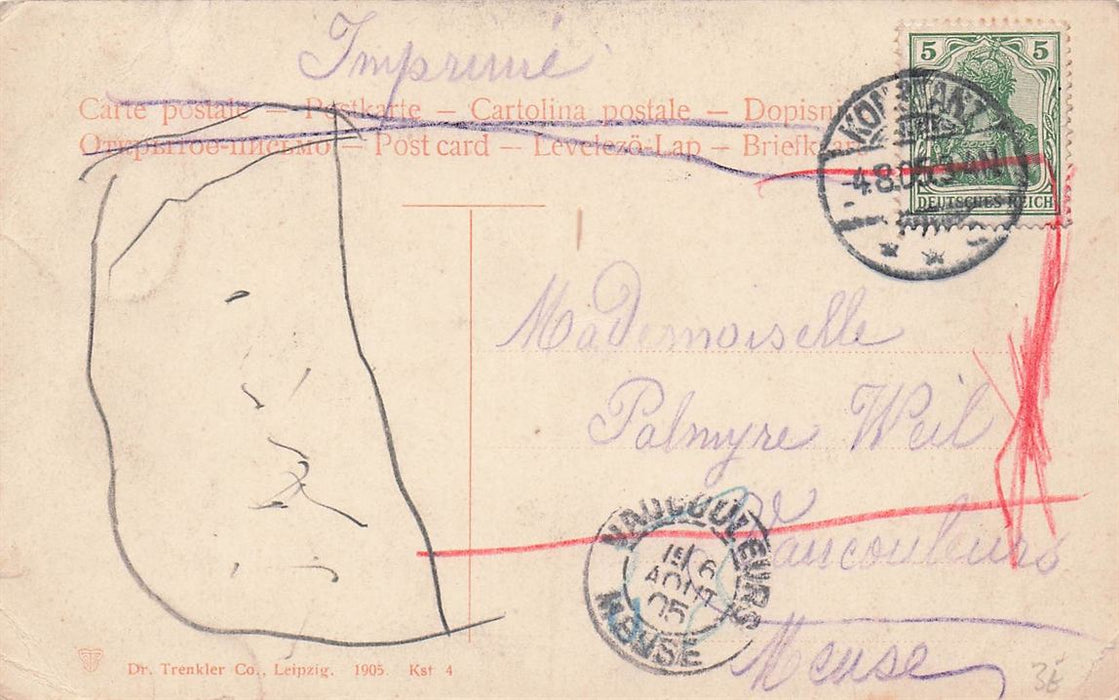 Imprimé
Carte postale — Postkarte — Cartolina postale — Dopisni
Открытое письмо — Post card — Levelező-Lap — Briefkaart
5 5
DEUTSCHES REICH
KONSTANZ
4.8.05.
Mademoiselle
Palmyre Weil
Vaucouleurs
Meuse
VAUCOULEURS
6
AOUT
05
MEUSE
Dr. Trenkler Co., Leipzig. 1905. Kst 4